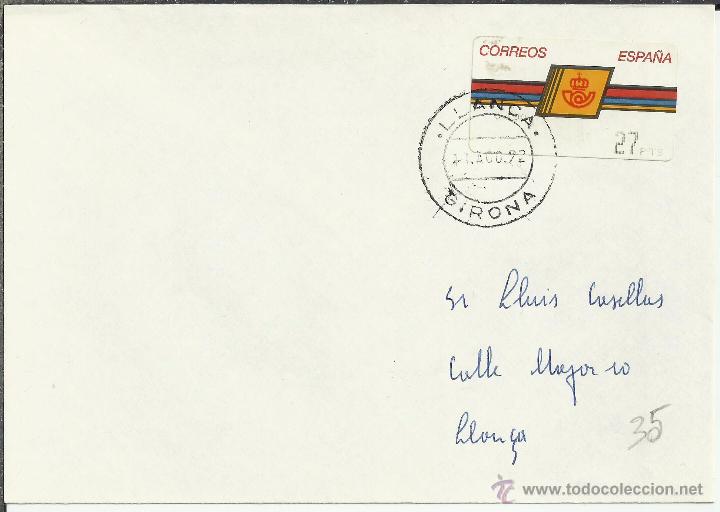 CORREOS ESPAÑA
27 PTS
·LLANCA·
AGO.92
GIRONA
Sr Lluis Casellas
Calle Major 10
Llança
35
www.todocoleccion.net